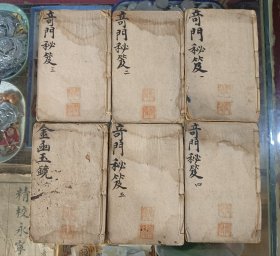 奇門秘笈一
奇門秘笈二
奇門秘笈三
奇門秘笈四
奇門秘笈五
金函玉鏡
精校永寧